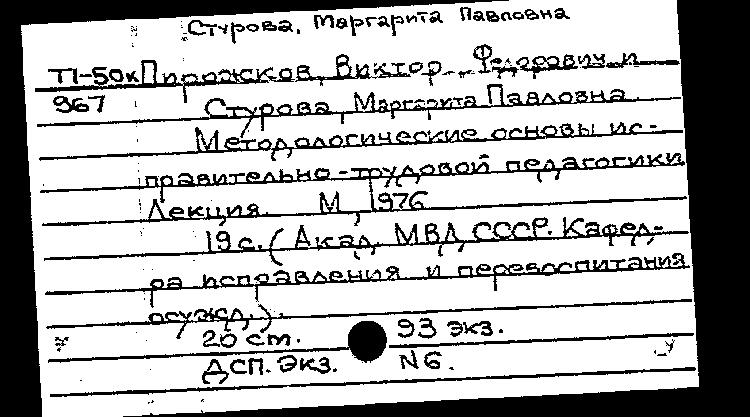 Стурова, Маргарита Павловна
П-50к Пирожков, Виктор Федорович и
967 Стурова, Маргарита Павловна
Методологические основы ис-
правительно-трудовой педагогики
Лекция. М, 1976
19 с. (Акад. МВД СССР. Кафед-
ра исправления и перевоспитания
осужд.).
20 ст. 93 экз.
ДСП. Экз. N6.